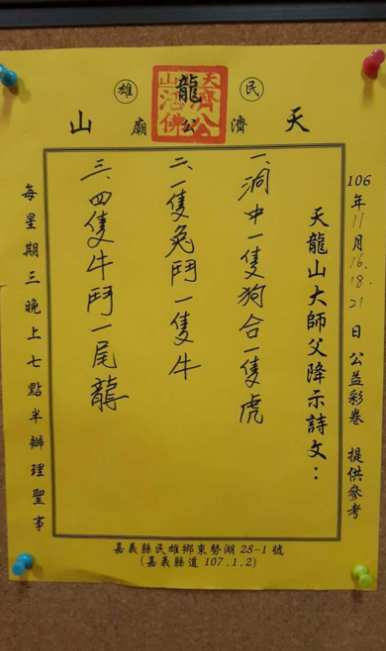 民 龍 雄
天 濟 公 廟 山
天濟公
山活佛
106年11月16.18.21日 公益彩卷 提供參考
天龍山大師父降示詩文：
一、洞中一隻狗合一隻虎
二、一隻兔鬥一隻牛
三、四隻牛鬥一尾龍
每星期三晚上七點半辦理聖事
嘉義縣民雄鄉東勢湖28-1號
(嘉義縣道107.1.2)